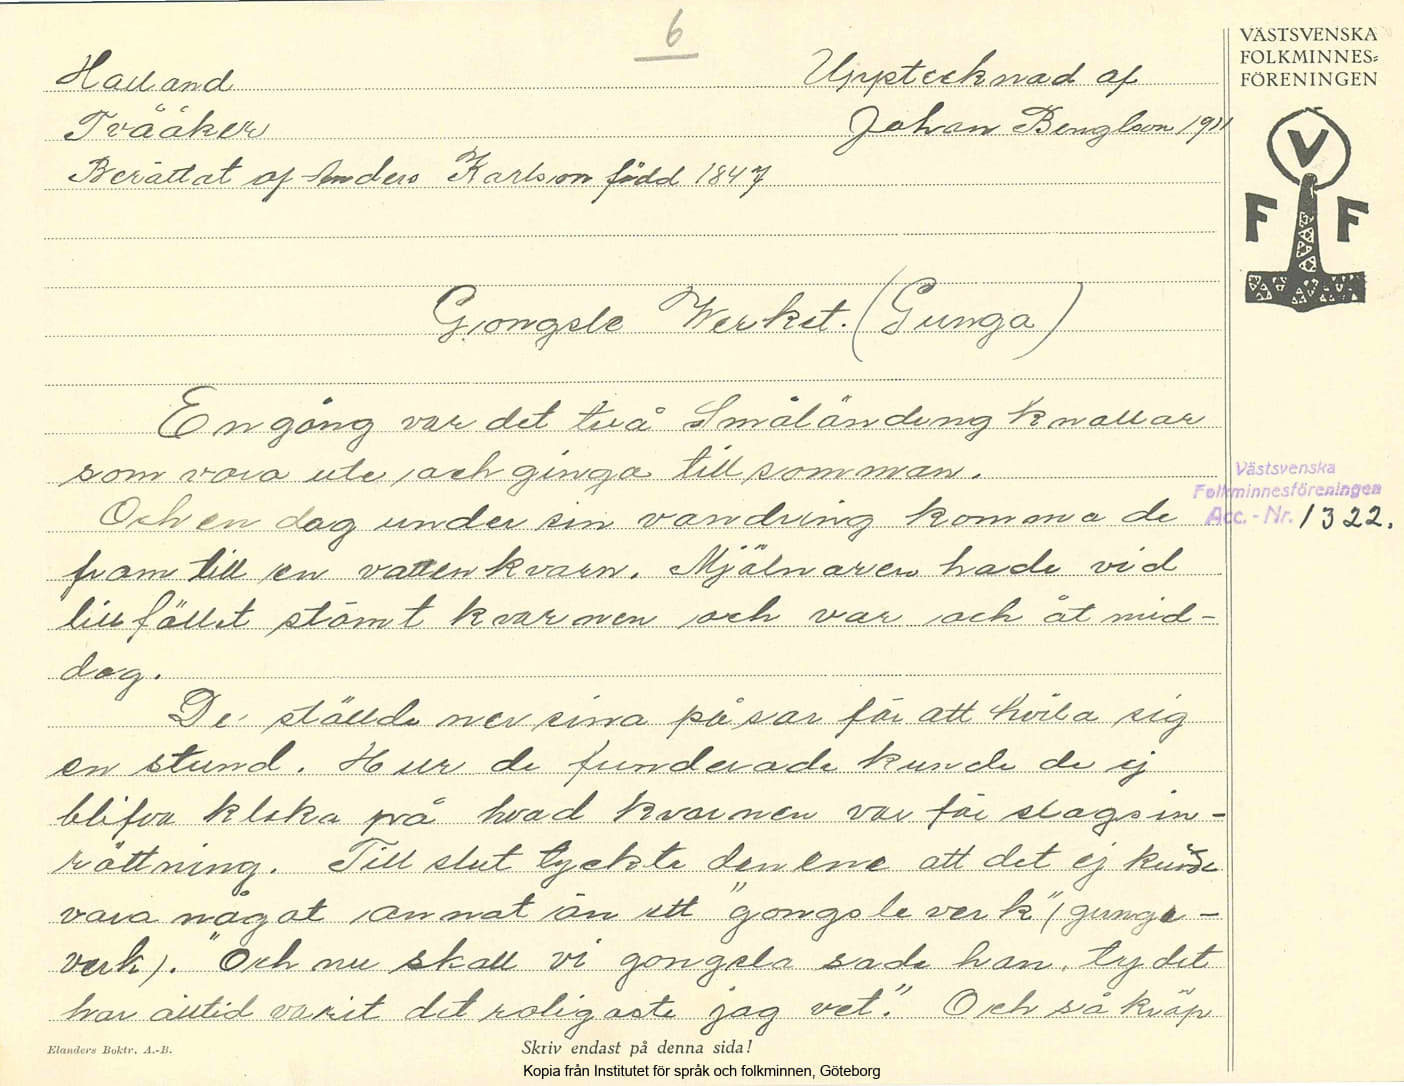 6
VÄSTSVENSKA
FOLKMINNES=
FÖRENINGEN
V
F F
Halland
Uppteknad af
Tvååker
Johan Bengtson 1911
Berättat af Anders Karlson född 1847
Gongsle Werket. (Gunga)
En gång var det två Småländing Knallar
som vora ute och gingo till somman.
Och en dag under sin vandring komma de
fram till en vattenkvarn. Mjölnaren hade vid
tillfället stämt kvarnen och var och åt mid-
dag.
De ställde ner sina påsar för att hvila sig
en stund. Hur de funderade kunde de ej
blifva kloka på hvad kvarnen var för slagsin-
rättning. Till slut tyckte den ene att det ej kunde
vara något annat än ett "gongsle verk" (gunge-
verk). "Och nu skall vi gongsla sade han, ty det
har alltid varit det roligaste jag vet". Och så kröp
Västsvenska
Folkminnesföreningen
Acc. - Nr. 1322.
Elanders Boktr. A.-B.
Skriv endast på denna sida!
Kopia från Institutet för språk och folkminnen, Göteborg